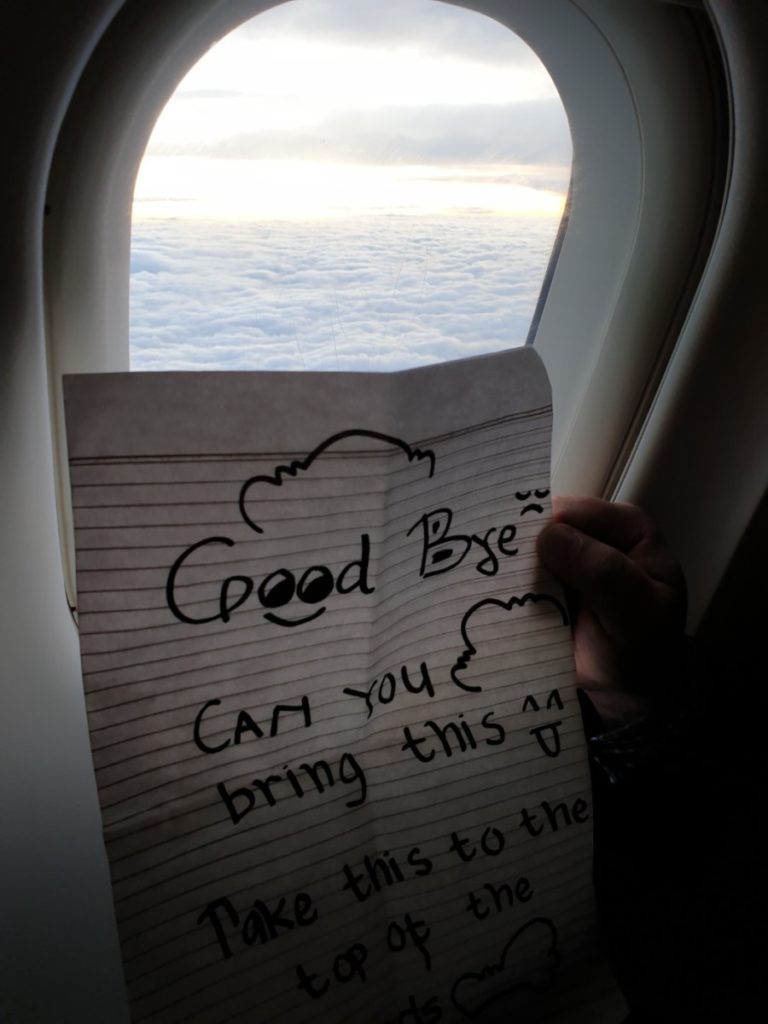 Good Bye
CAN YOU
bring this
Take this to the
top of the